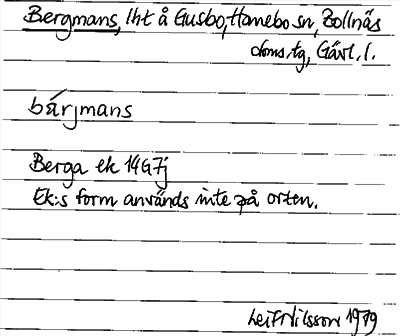 Bergmans, lht å Gusbo, Hanebo sn, Bollnäs
doms.tg, Gävl. l.
bárjmans
Berga ek 14G7j
Ek:s form används inte på orten.
Leif Nilsson 1979